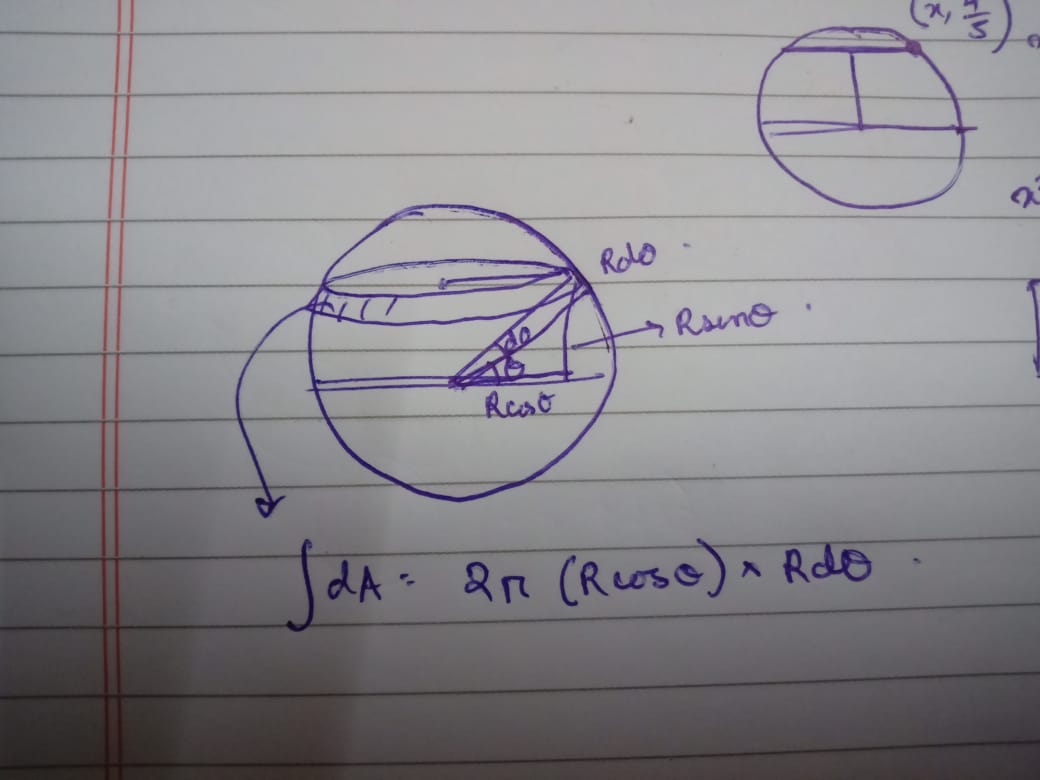 (x, 4/5)
Rdθ
Rsinθ
dθ
θ
Rcosθ
∫dA = 2π (Rcosθ) × Rdθ